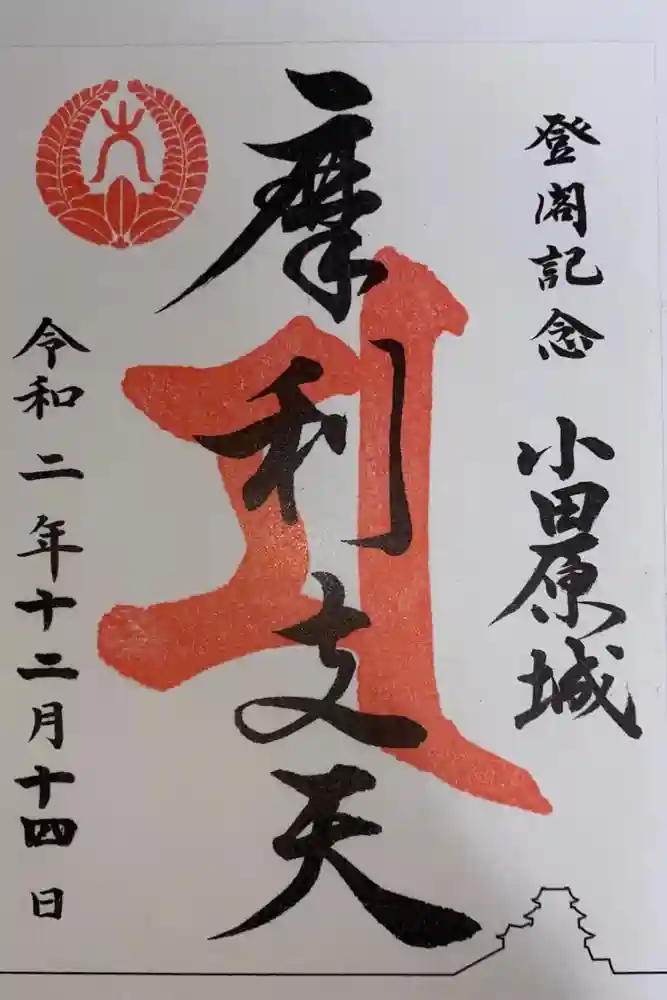 登閣記念 小田原城
摩利支天
令和二年十二月十四日